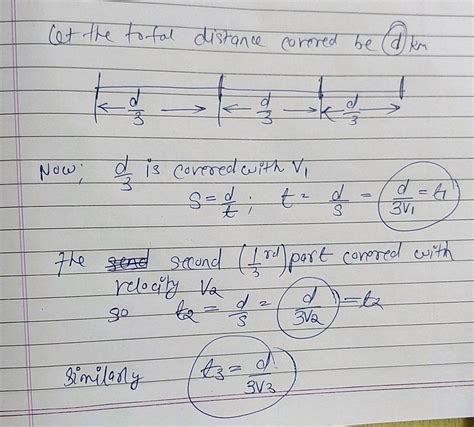 Let the total distance covered be d km
d/3 d/3 d/3
Now; d/3 is covered with V₁
S = d/t ; t = d/s = d/3V₁ = t₁
The second (1/3 rd) part covered with
velocity V₂
so t₂ = d/s = d/3V₂ = t₂
Similarly t₃ = d/3V₃